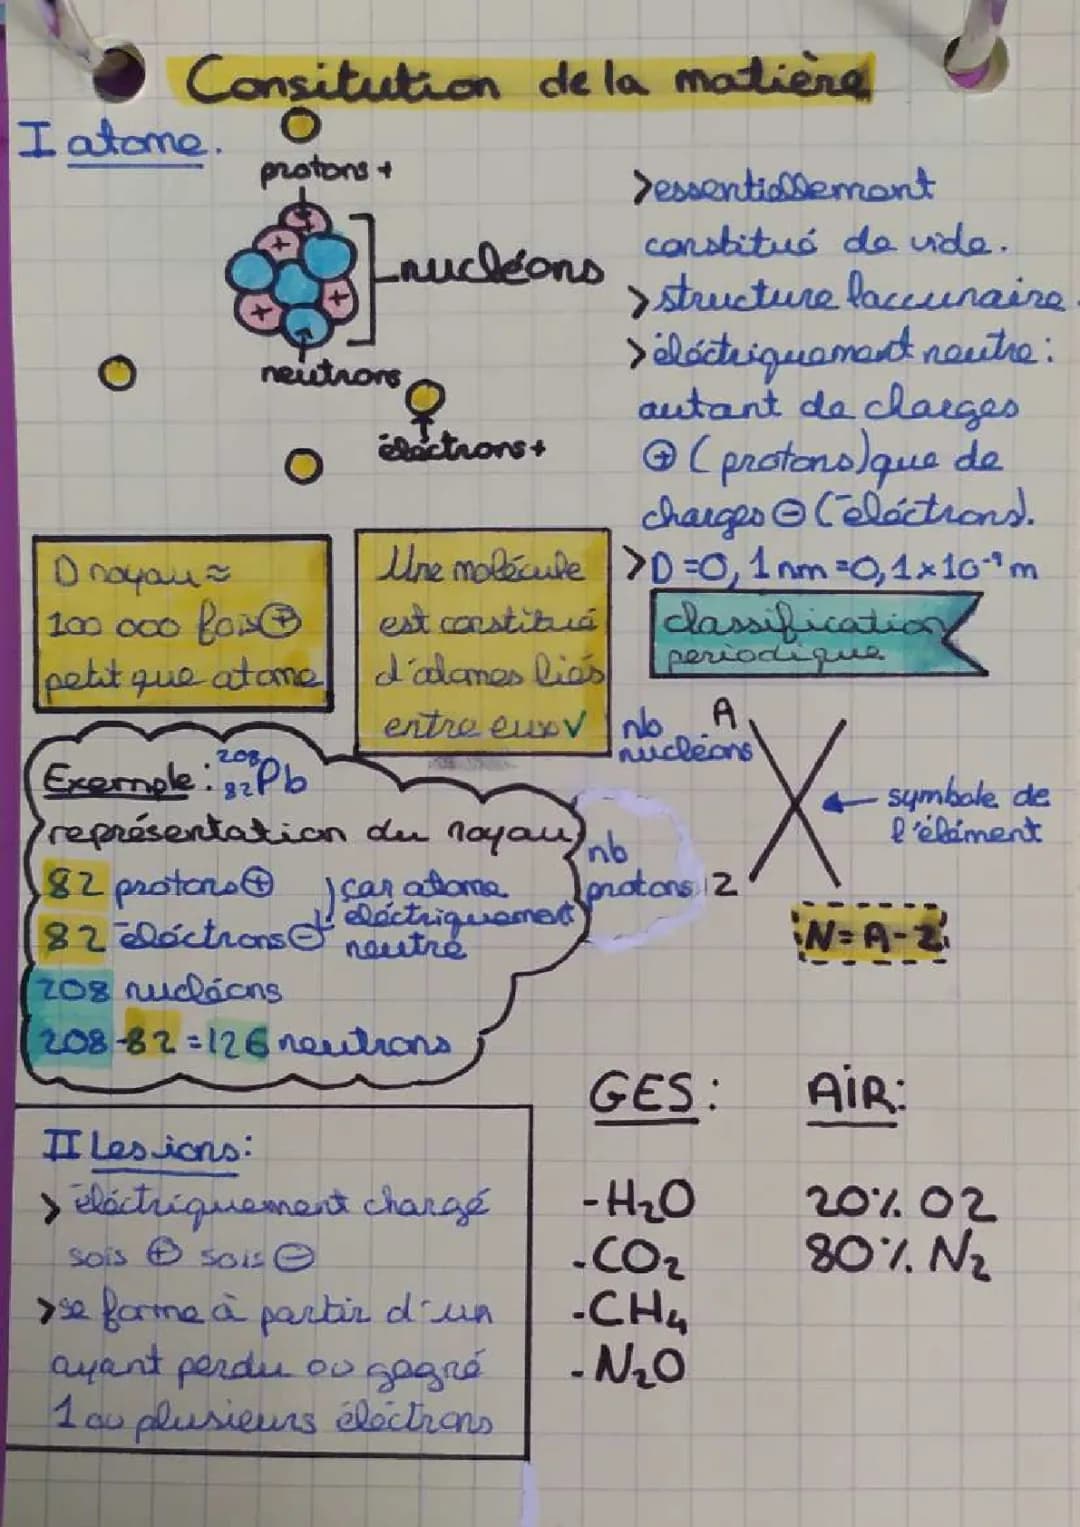 Consitution de la matière
I atome.
protons +
nucléons
neutrons
électrons +
>essentiellement
constitué de vide.
>structure laccunaire.
>éléctriquement neutre:
autant de charges
⊕ (protons) que de
charges ⊖ (éléctrons).
>D=0,1nm=0,1×10⁻⁹m
D noyau ≈
100 000 fois ⊕
petit que atome
Une molécule
est constitué
d'atomes liés
entre eux ✓
classification
periodique
nb nucléons A
X
symbole de
l'élément
nb protons Z
N=A-Z
Exemple: ²⁰⁸₈₂Pb
représentation du noyau
82 protons ⊕
82 éléctrons ⊖
car atome
éléctriquement
neutre
208 nucléons
208-82=126 neutrons
II Les ions:
> éléctriquement chargé
sois ⊕ sois ⊖
>se forme à partir d'un
ayant perdu ou gagné
1 ou plusieurs éléctrons
GES:
-H₂O
-CO₂
-CH₄
-N₂O
AIR:
20% O2
80% N₂